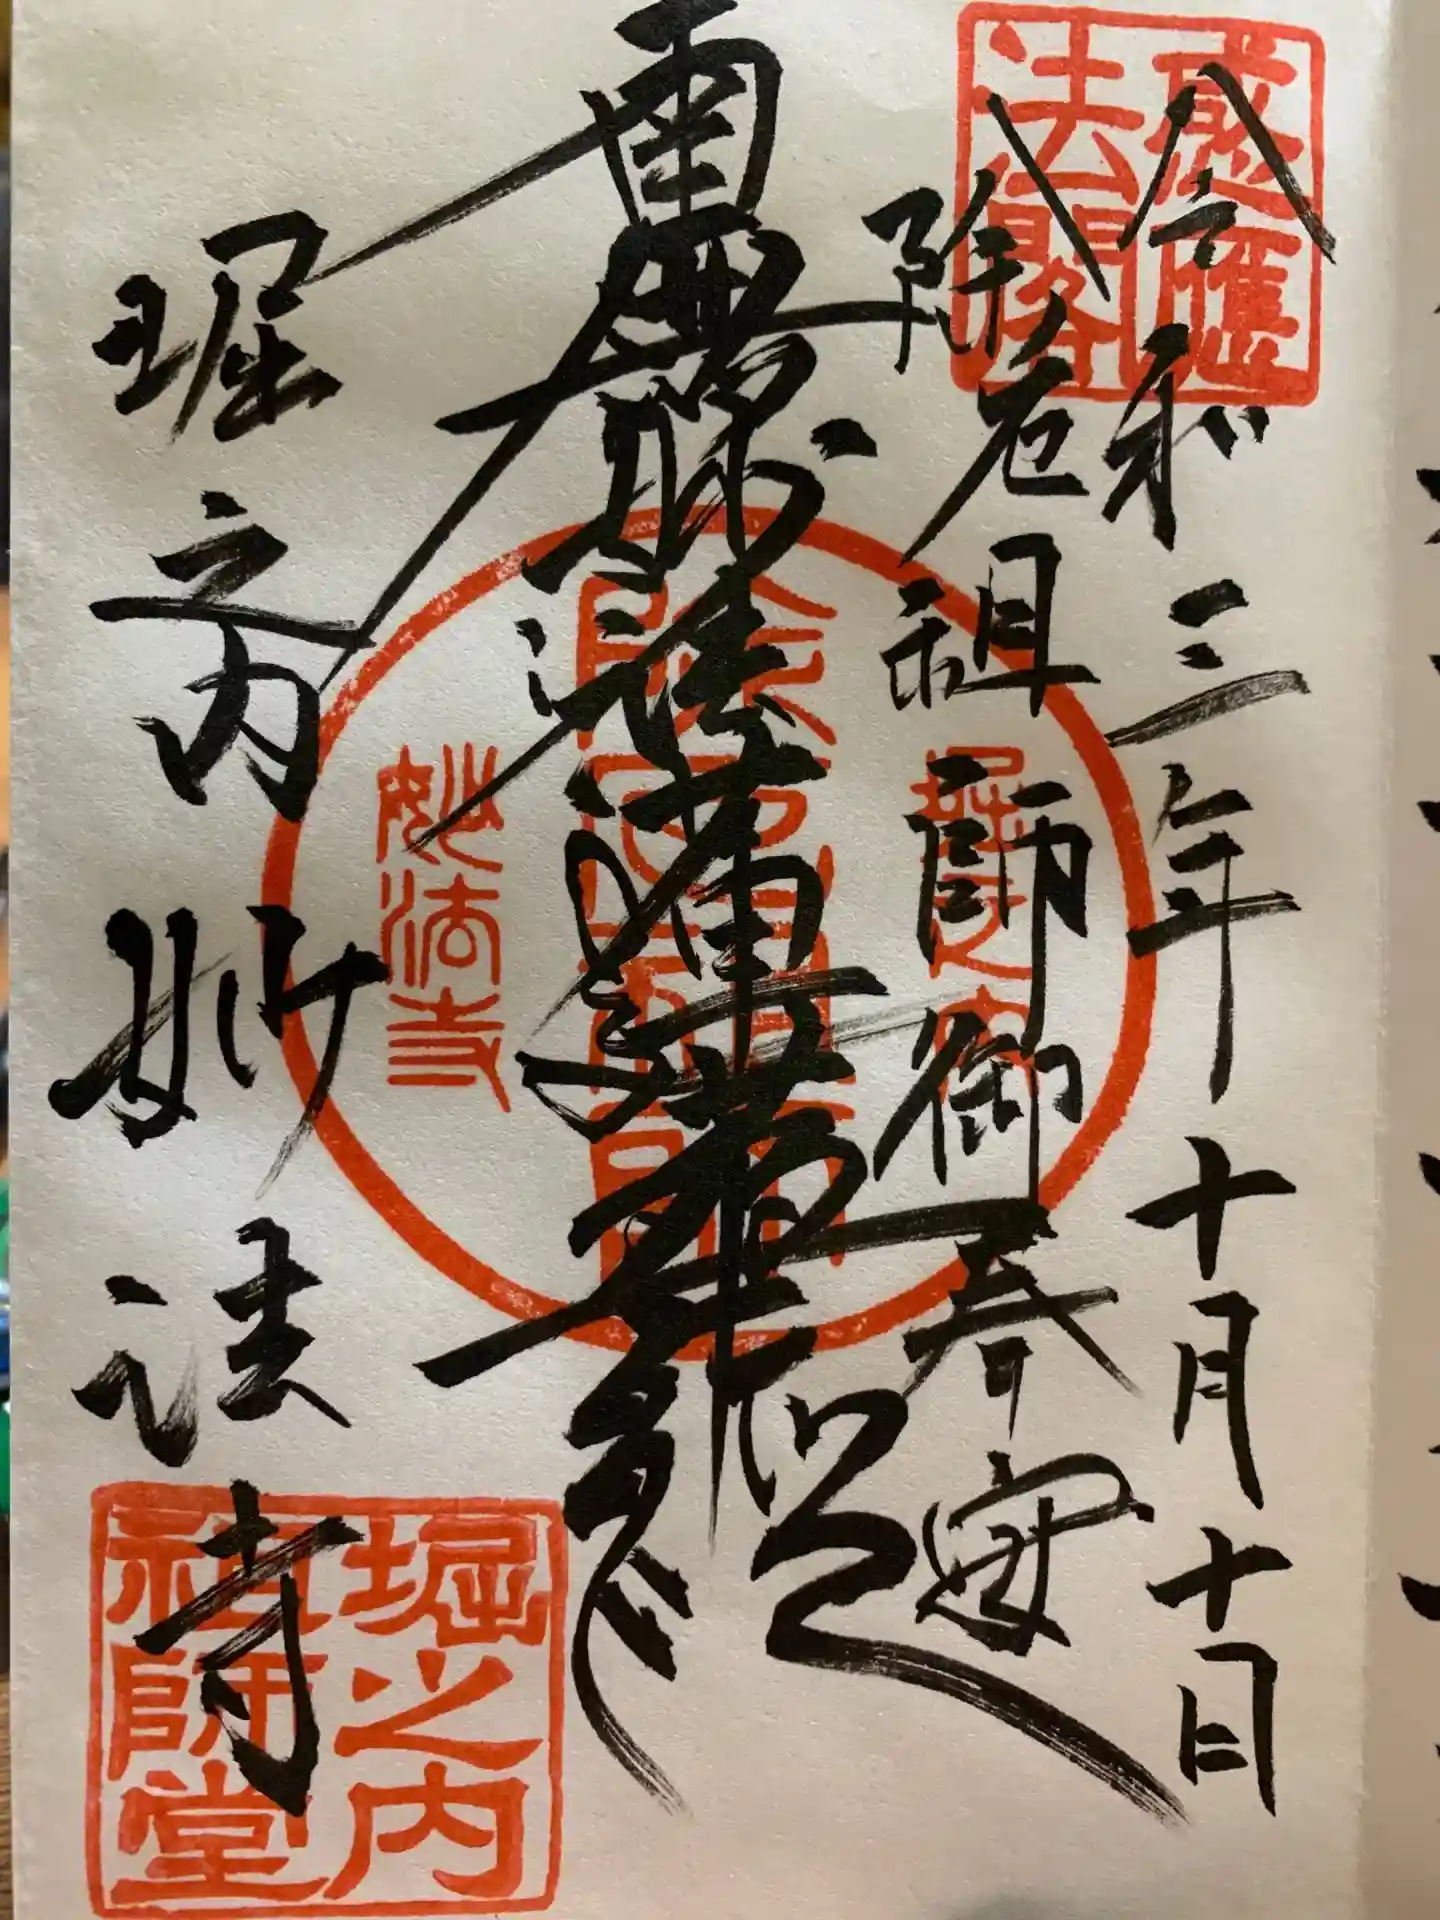 感應
法閣
令和三年十月十日
除厄祖師御奉安
南無妙法蓮華経
堀之内
除厄祖師
妙法寺
堀之内妙法寺
堀之内
祖師堂